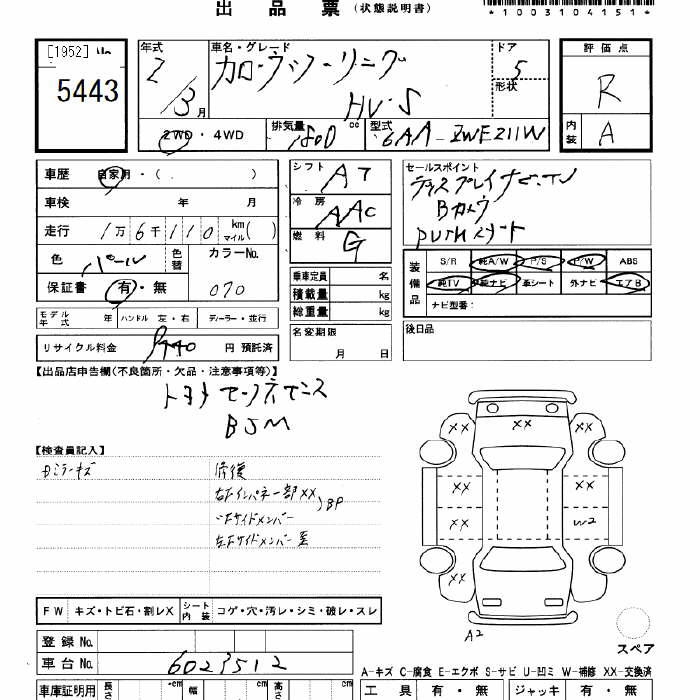 出品票(状態説明書)
*1003104151*
[1952]
5443
年式
2/3月
車名・グレード
カローラツーリング
HV・S
ドア
5
形状
評価点
R
内装
A
2WD・4WD
排気量 1800 cc
型式 6AA-ZWE211W
車歴 自家用・( )
車検 年 月
走行 1万6千110 km マイル( )
色 パール
色替
カラーNo.
070
保証書 有・無
モデル年式 年 ハンドル 左・右 ディーラー・並行
リサイクル料金 9440 円 預託済
シフト AT
冷房 AAC
燃料 G
乗車定員 名
積載量 kg
総重量 kg
名変期限
月 日
セールスポイント
ディスプレイオーディオ
Bカメラ
PUSHスタート
装備品
S/R 純A/W P/S P/W ABS
純TV 純ナビ 革シート 外ナビ エアB
ナビ型番:
後日品
【出品店申告欄(不良箇所・欠品・注意事項等)】
トヨタセーフティセンス
BSM
【検査員記入】
修復
右Fインパネ一部XX
サイドメンバー
BP
左Fサイドメンバー
XX
XX
XX
XX
XX
XX
W2
XX
A2
スペア
FW キズ・トビ石・割レX シート内装 コゲ・穴・汚レ・シミ・破レ・スレ
登録No.
車台No. 6023512
A-キズ C-腐食 E-エクボ S-サビ U-凹ミ W-補修 XX-交換済
車庫証明用 長さ cm 幅 cm 高さ cm
工具 有・無 ジャッキ 有・無